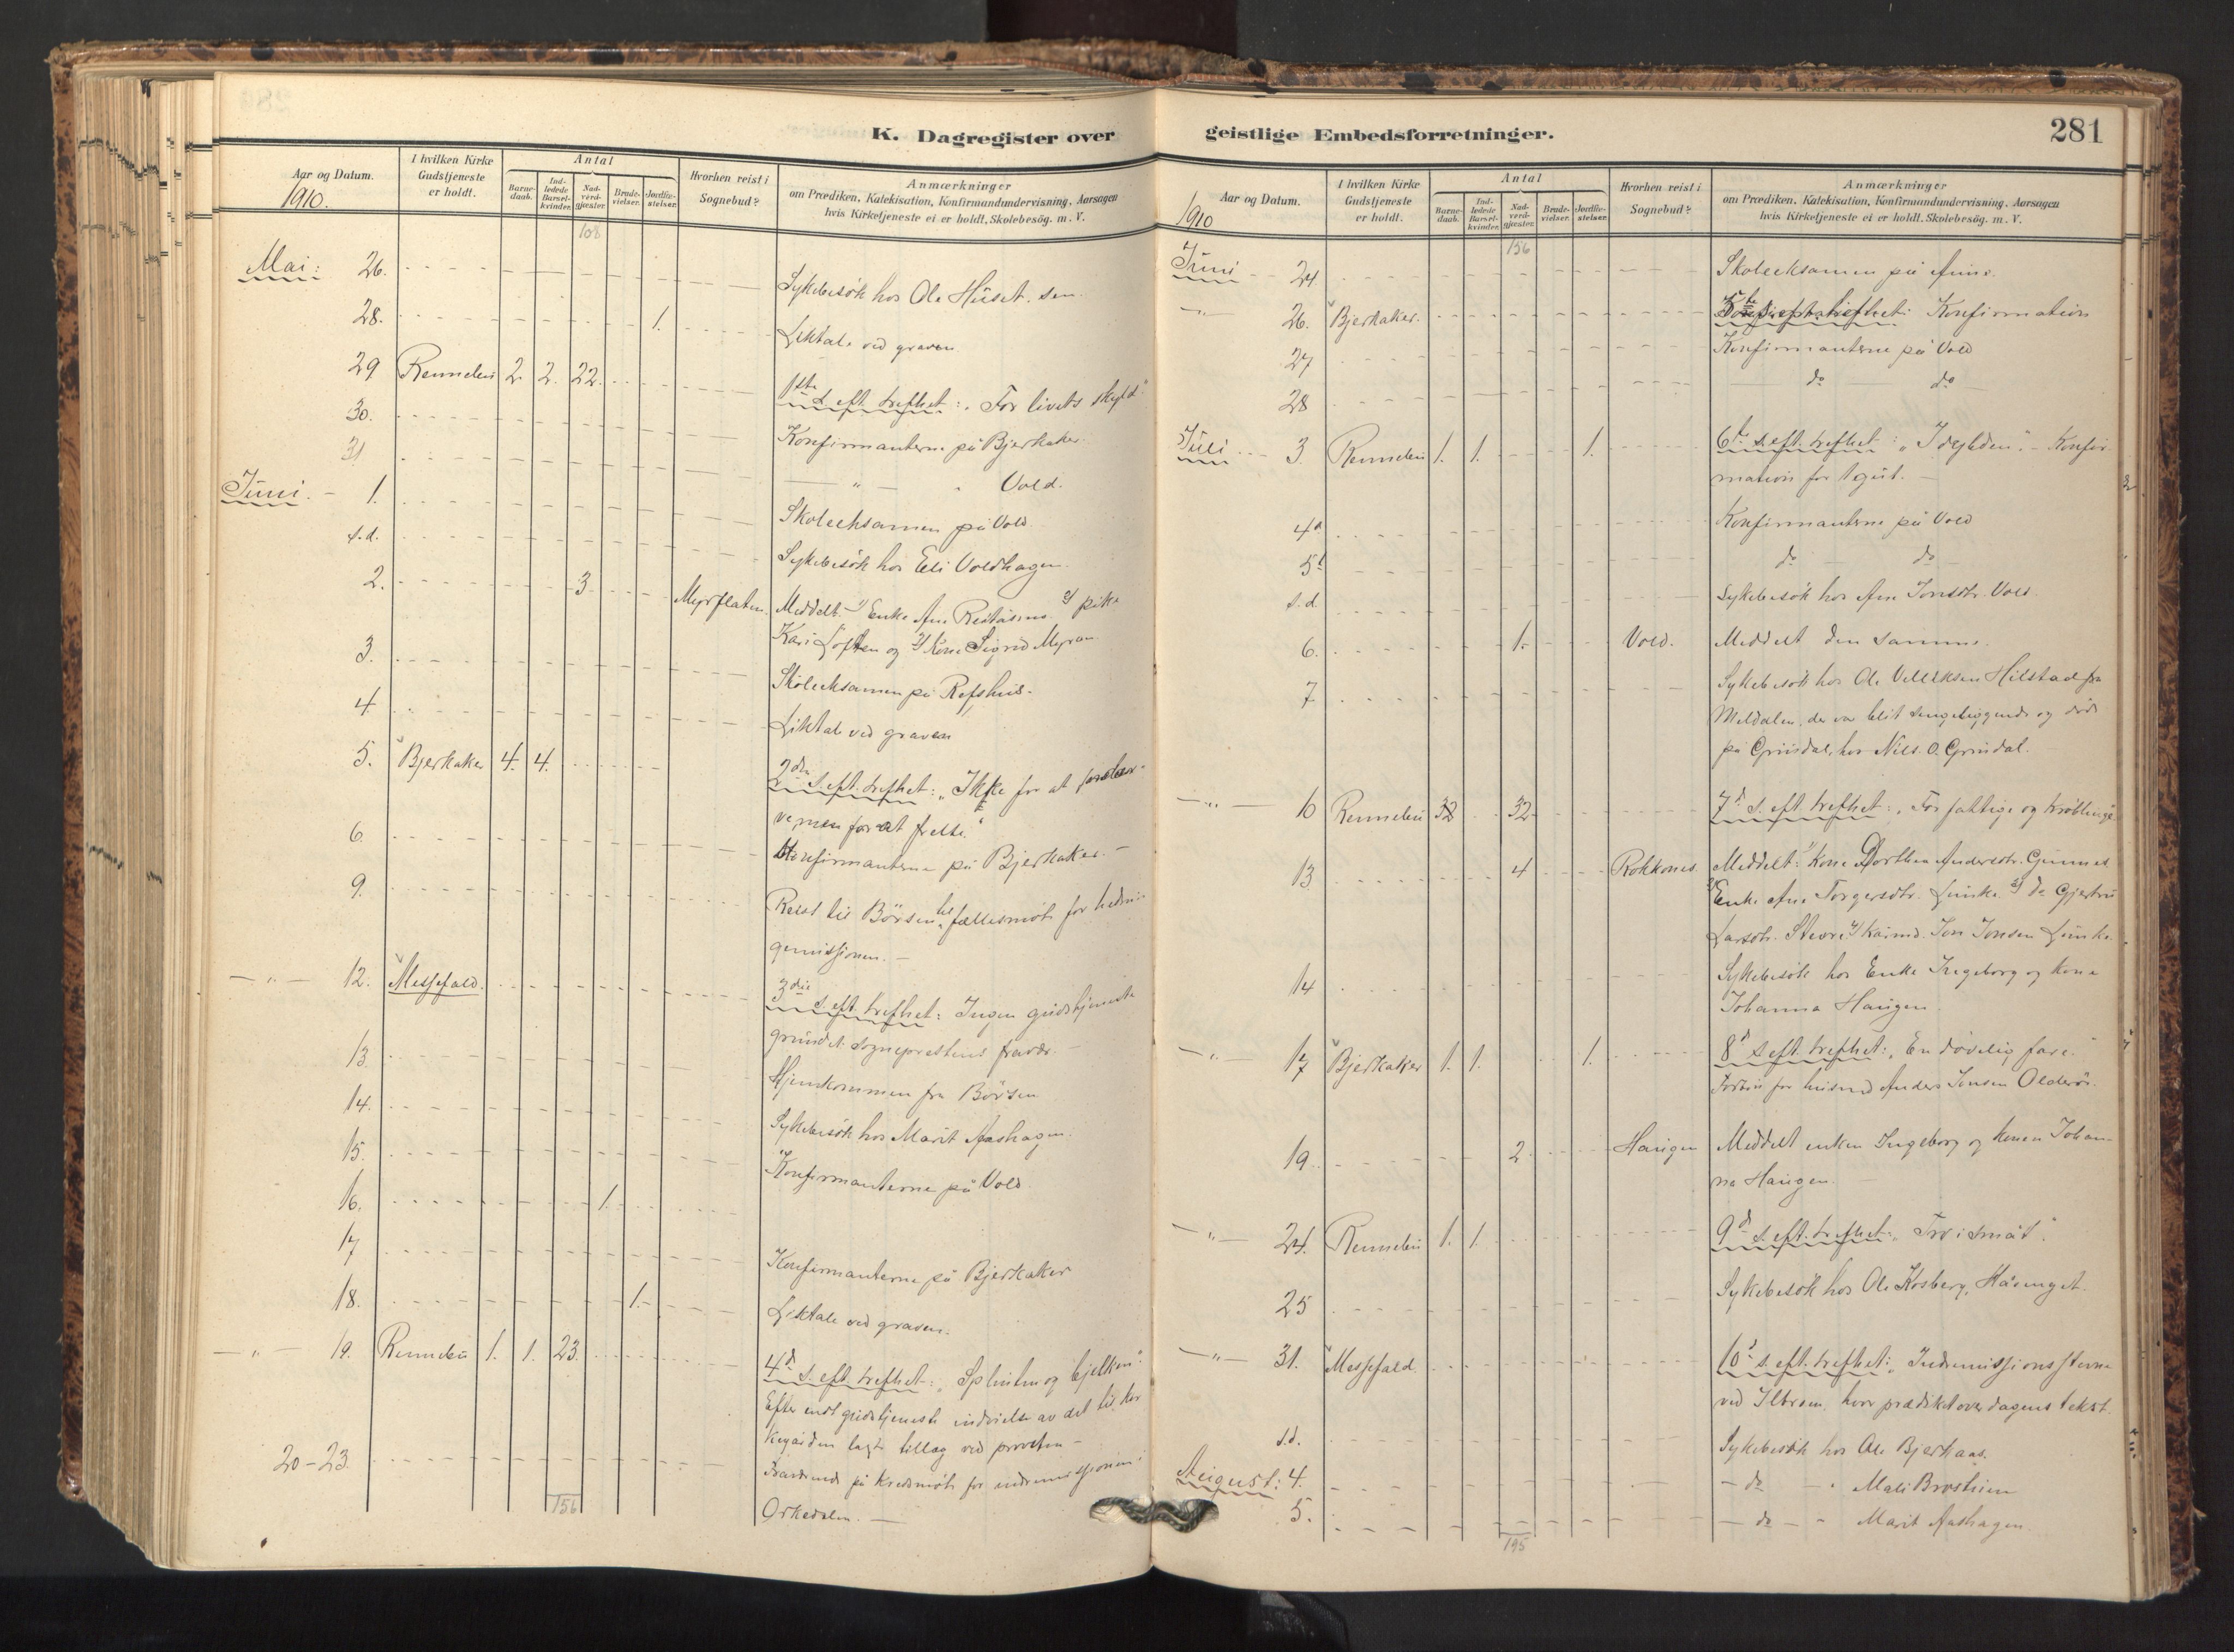 K. Dagregister over
Aar og Datum.
1910.
I hvilken Kirke Gudstjeneste er holdt.
Antal
Barnedaab.
Indledede Barselkvinder.
Nadverdgjæster
Brudevielser.
Jordfæstelser.
Hvorhen reist i Sognebud?
Anmærkninger
om Prædiken, Katekisation, Konfirmandundervisning, Aarsagen
hvis Kirketjeneste ei er holdt, Skolebesög. m. V.
108
Mai: 26. Sykebesök hos Ole Huset. sen.
28. 1. Liktale ved graven
29 Rennebu 2. 2. 22. 1ste s. eft. trefhet: "For livets skyld"
30. Konfirmanterne på Bjerkaker.
31 — " — " Vold.
Juni. - 1. Skoleeksamen på Vold.
s.d. Sykebesök hos Eli Voldhagen.
2. 3 Myrflaten. Meddelt 1) Enke Ane 2) pike
Kari Loften og 3) Kone Sigrid Myran
3. Skoleeksamen på Refshus.
4 Liktale ved graven
5. Bjerkaker 4. 4. 2den s. eft. trefhet: "Ikke for at fordær-
ve men for at frelse."
6 Konfirmanterne på Bjerkaker. —
9. Reist til Börsen til fællesmöte for hednin-
gemissjonen. —
— " — 12. Messefald. 3die s. eft. trefhet: Ingen gudstjeneste
grundet sogneprestens fravær.
13. Hjemkommen fra Börsen
14. Sykebesök hos Marit Aashagen.
15. Konfirmanterne på Vold.
16. 1.
17 Konfirmanterne på Bjerkaker
18. 1. Liktale ved graven.
— " — 19. Rennebu 1. 1. 23. 4d s. eft. trefhet: "Splinten og bjelken"
Efter endt gudstjeneste indvielse av det til kir
kegården lagte tillæg ved provsten —
20-23. Fraværende på kredsmöte for indremissjonen i
Orkedalen. —
156
geistlige Embedsforretninger.
281
Aar og Datum.
1910
I hvilken Kirke Gudstjeneste er holdt.
Antal
Barnedaab.
Indledede Barselkvinder.
Nadverdgjæster.
Brudevielser.
Jordfæstelser.
Hvorhen reist i Sognebud?
Anmærkninger
om Prædiken, Katekisation, Konfirmandundervisning, Aarsagen
hvis Kirketjeneste ei er holdt, Skolebesög. m. V.
156
Juni 24. Skoleeksamen på Aune.
— " 26. Bjerkaker. 5te s. eft. trefhet: Konfirmation
27 Konfirmanterne på Vold
28 — do — do —
Juli 3. Rennebu 1. 1. 1. 6te s. eft. trefhet: "I dybden". - Konfir
mation for 1 gut. —
4d Konfirmanterne på Vold
5t do — do —
s.d. Sykebesök hos Ane Jonsdtr. Vold.
6. 1. Vold. Meddelt den samme.
7 Sykebesök hos Ole Hilstad fra
Meldalen, der var blit sengeliggende og döde
på Grindal, hos Nils. O. Grindal.
— " — 10 Rennebu 32 32 7d s. eft. trefhet: "For fattige og
13 4 Rokkones. Meddelt: 1) Kone Dorthea Andersdtr. Gunnes
2) Enke Ane Torgersdtr. Lunke 3) do Gjertru
Larsdtr. 4) Jon Jonsen Lunke.
14 Sykebesök hos Enke Ingeborg og kone
Johanna Haugen.
— " — 17 Bjerkaker 1. 1. 1. 8d s. eft. trefhet: "En dövelig fare."
for husmd Anders Jonsen
19 2 Haugen Meddelt enken Ingeborg og konen Johan-
na Haugen. —
— " — 24. Rennebu 1. 1. 9d s. eft. trefhet: "Tro i småt".
25 Sykebesök hos Ole Kosberg,
— " — 31. Messefald. 10d s. eft. trefhet: "Indremissionsstevne
ved hvor prædiket over dagens tekst.
s.d. Sykebesök hos Ole Bjerkaas.
August: 4. — do — " Mali
5. — do — " Marit Aashagen.
195